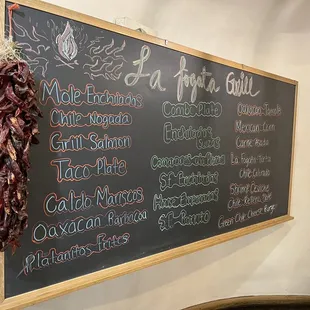 La fogata Grill
Mole Enchiladas
Chile Nogada
Grill Salmon
Taco Plate
Caldo Mariscos
Oaxacan Barbacoa
Platanitos Frites
Combo Plate
Enchiladas
Burrito
Oaxacan Tamale
Mexican Corn
Carne Asada
La Fogata
Chile Colorado
Shrimp
Chile Relleno
Green Chile Cheese Burger